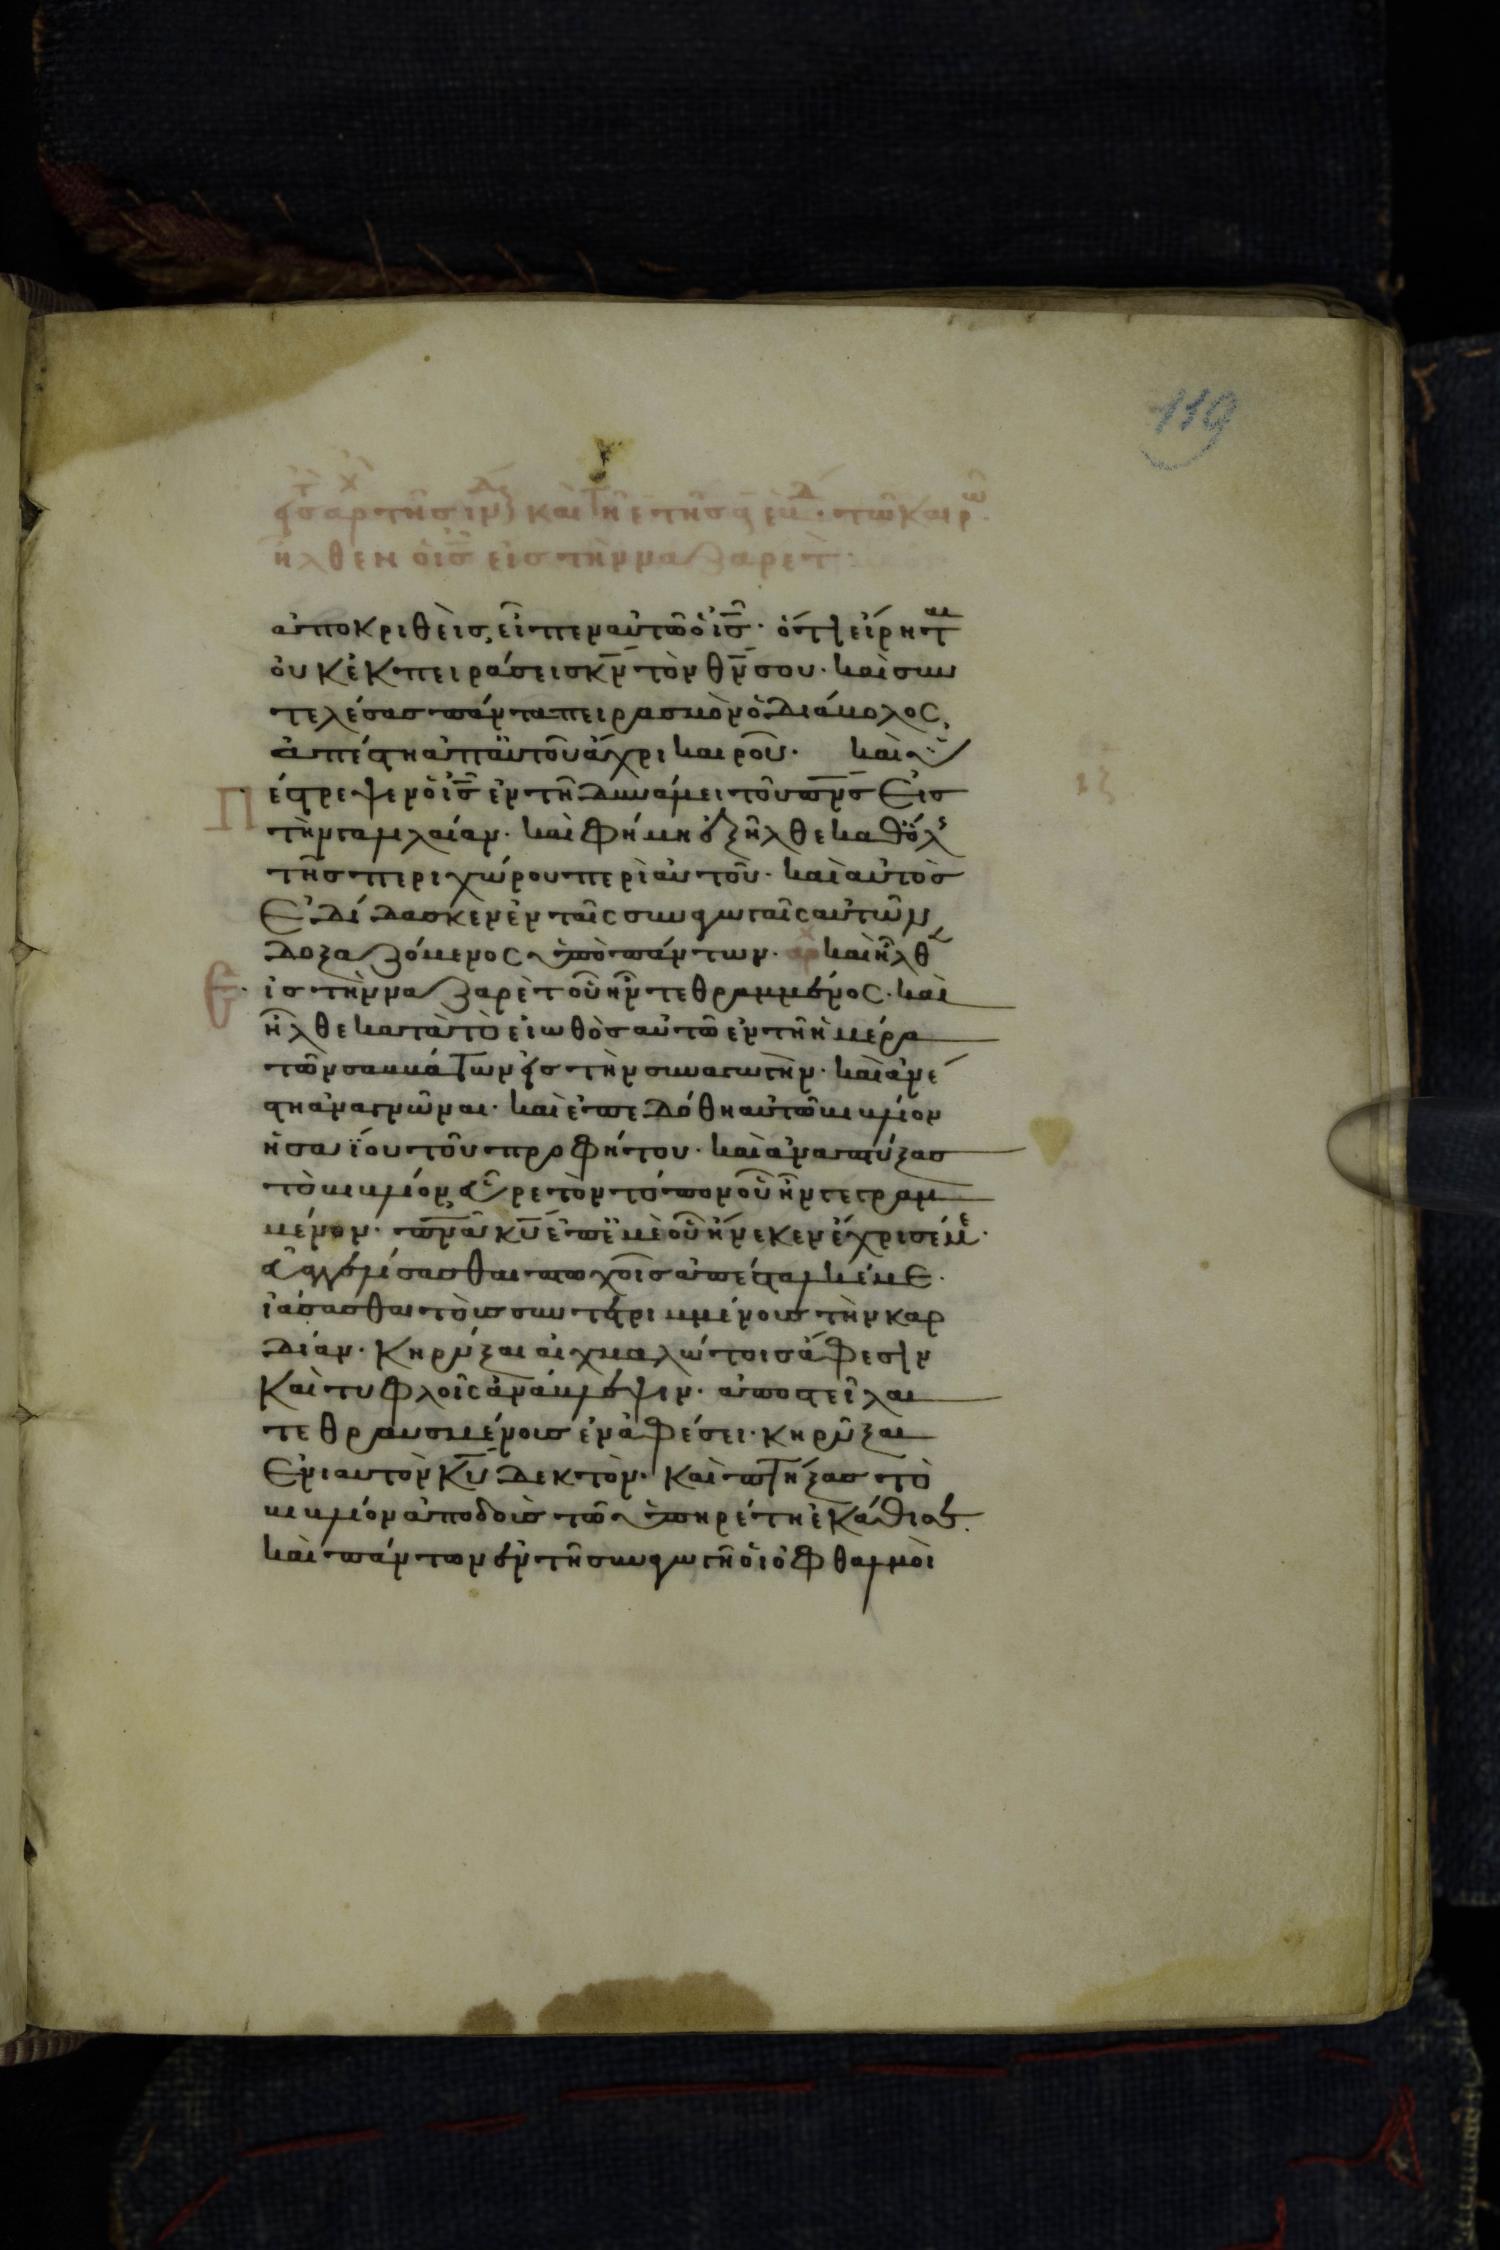 119
ἦλθεν ὁ ις εἰς τὴν ναζαρέτ·
ἀποκριθεὶς, εἶπεν αὐτῶ ὁ ις· ὅτι εἴρηται
οὐκ ἐκπειράσεις κν τὸν θν σου· καὶ συν
τελέσας πάντα πειρασμὸν ὁ διάβολος,
ἀπέστη ἀπ αὐτοῦ ἄχρι καιροῦ· καὶ ὑ
πέστρεψεν ὁ ις ἐν τῆ δυνάμει τοῦ πνς εἰς
ιζ
τὴν γαλιλαίαν· καὶ φήμη ἐξῆλθε καθ ὅλ
τῆς περιχώρου περὶ αὐτοῦ· καὶ αὐτὸς
ἐδίδασκεν ἐν ταῖς συναγωγαῖς αὐτῶν,
δοξαζόμενος ὑπὸ πάντων· αρχ καὶ ἦλθεν
εἰς τὴν ναζαρὲτ οὗ ἦν τεθραμμένος· καὶ
ἦλθε κατὰ τὸ εἰωθὸς αὐτῶ ἐν τῆ ἡμέρα
τῶν σαββάτων εἰς τὴν συναγωγὴν· καὶ ἀνέ
στη ἀναγνῶναι· καὶ ἐπεδόθη αὐτῶ βιβλίον
ἠσαΐου τοῦ προφήτου· καὶ ἀναπτύξας
τὸ βιβλίον, εὗρε τὸν τόπον οὗ ἦν γεγραμ
μένον· πνα κυ ἐπ ἐμὲ οὗ ἕνεκεν ἔχρισέ με·
εὐαγγελίσασθαι πτωχοῖς ἀπέσταλκέ με·
ἰάσασθαι τοὺς συντετριμμένους τὴν καρ
δίαν· κηρύξαι αἰχμαλώτοις ἄφεσιν
καὶ τυφλοῖς ἀνάβλεψιν· ἀποστεῖλαι
τεθραυσμένους ἐν ἀφέσει· κηρῦξαι
ἐνιαυτὸν κυ δεκτὸν· καὶ πτήξας τὸ
βιβλίον ἀποδοὺς τῶ ὑπηρέτη ἐκάθισεν·
καὶ πάντων ἐν τῆ συναγωγῆ οἱ ὀφθαλμοὶ